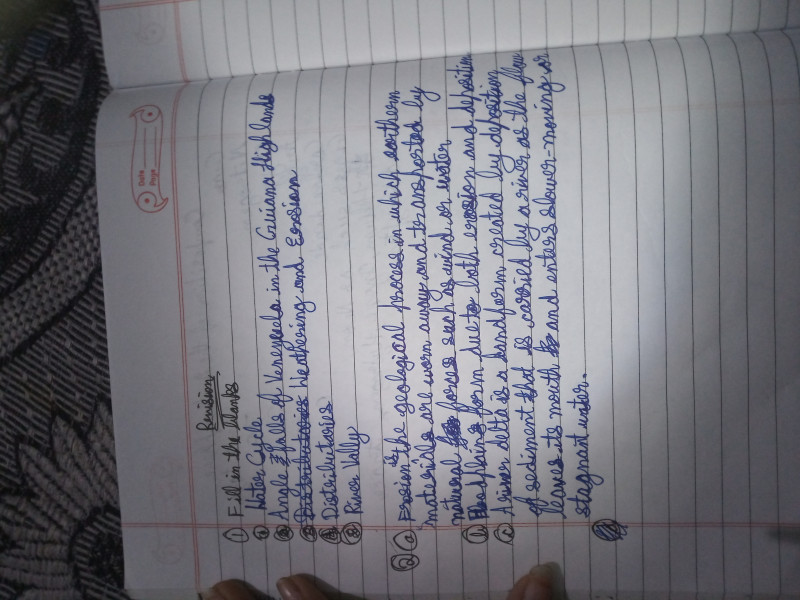 Date
Page
Revision
① Fill in the Blanks
ⓐ Water Cycle
Angle falls of Venezuela in the Guiana Highlands
Distributaries Weathering and Erosion
Distributaries
River Vally
② ⓐ Erosion is the geological process in which earthern
materials are worn away and transported by
natural forces such as wind or water
ⓑ Floodplains form due to both erosion and deposition
ⓒ A river delta is a landform created by deposition
of sediment that is carried by a river as the flow
leaves its mouth and enters slower-moving or
stagnant water.